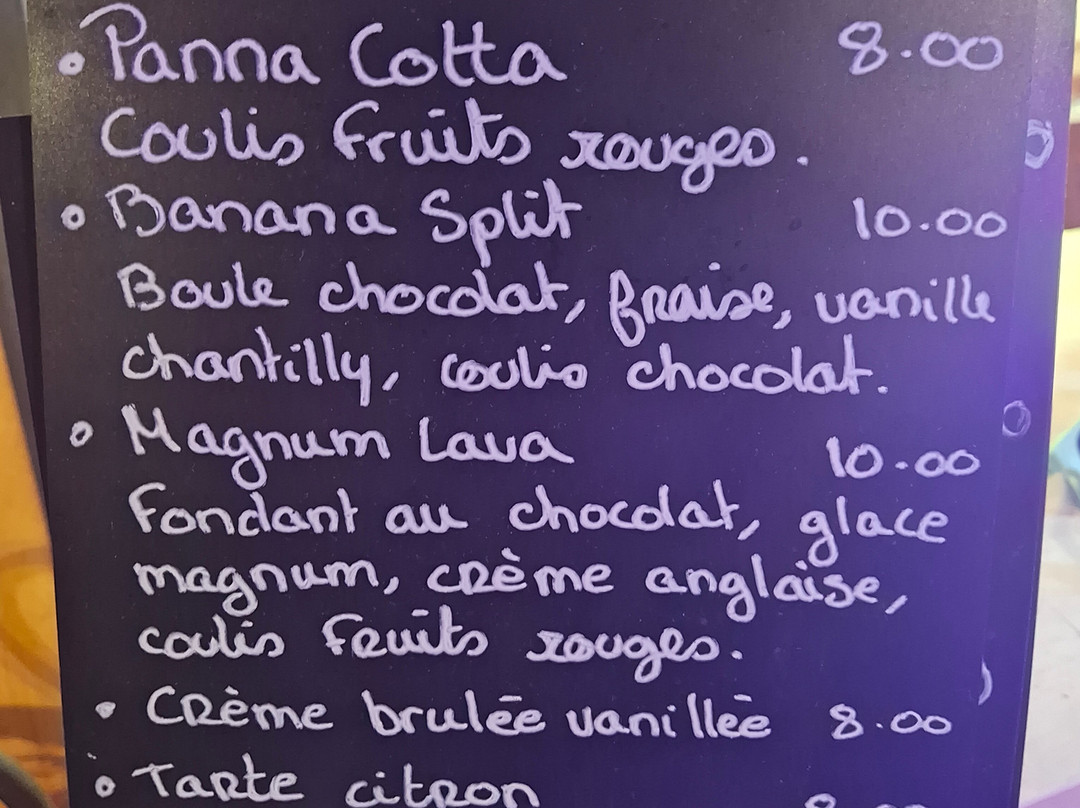 • Panna Cotta 8.00
Coulis fruits rouges.
• Banana Split 10.00
Boule chocolat, fraise, vanille
chantilly, coulis chocolat.
• Magnum Lava 10.00
Fondant au chocolat, glace
magnum, crème anglaise,
coulis fruits rouges.
• Crème brulée vanillée 8.00
• Tarte citron